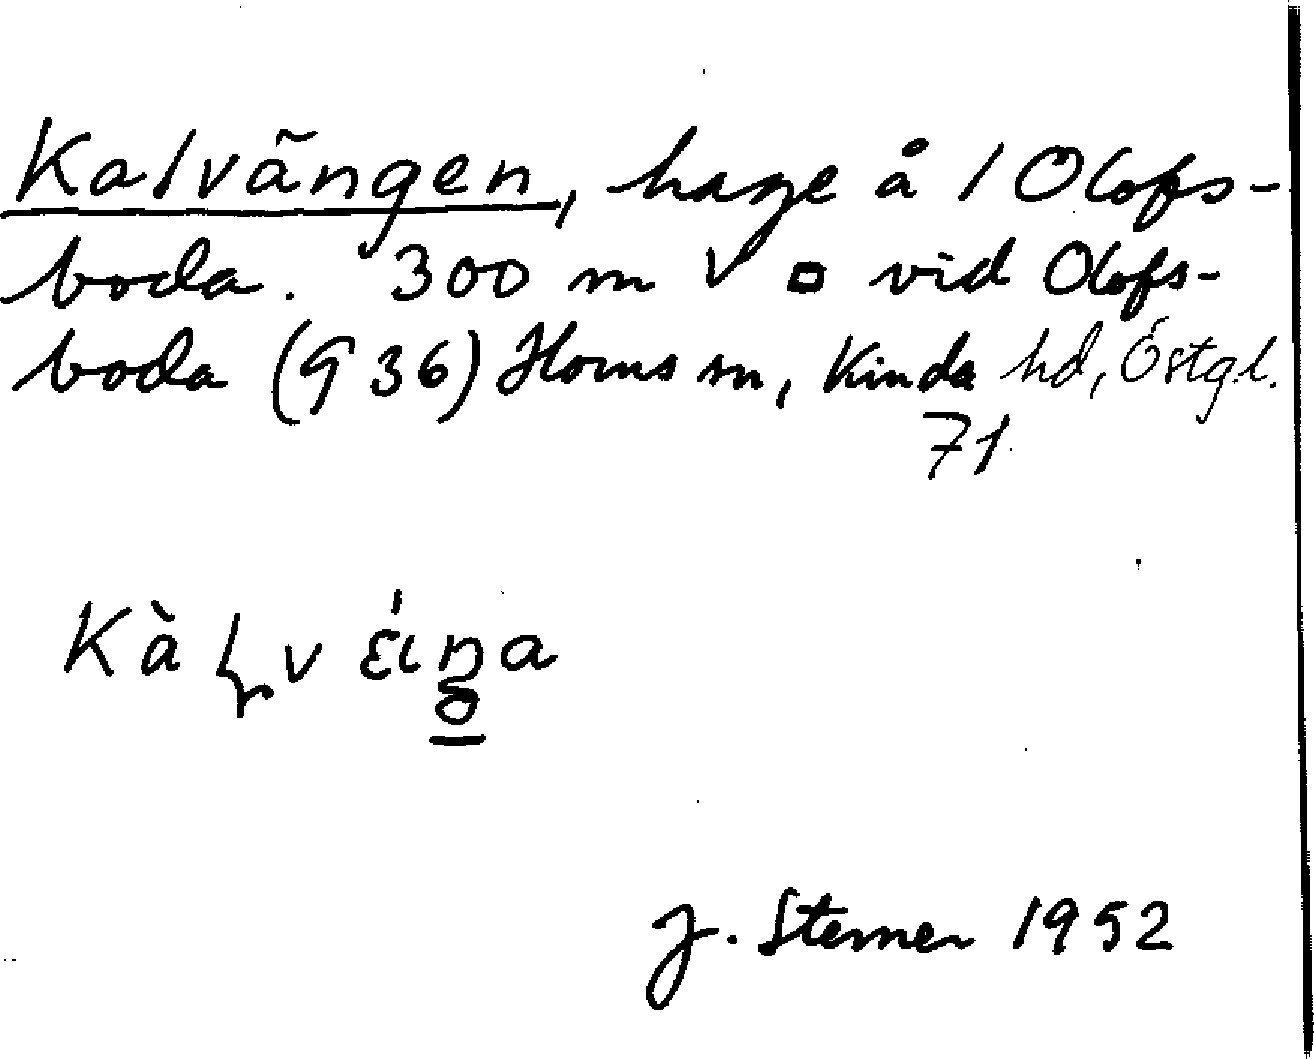 Kalvängen, hage å 1 Olofs-
boda. 300 m V □ vid Olofs-
boda (G 36) Horns sn, Kinda hd, Östgl.
71
J. Sterner 1952